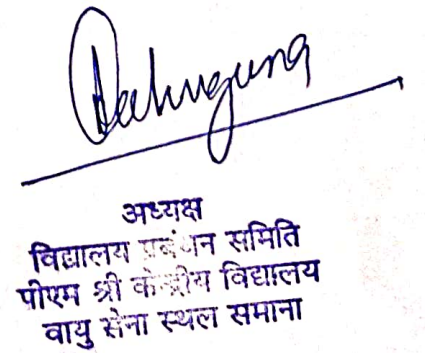 अध्यक्ष
विद्यालय प्रबंधन समिति
पीएम श्री केन्द्रीय विद्यालय
वायु सेना स्थल समाना